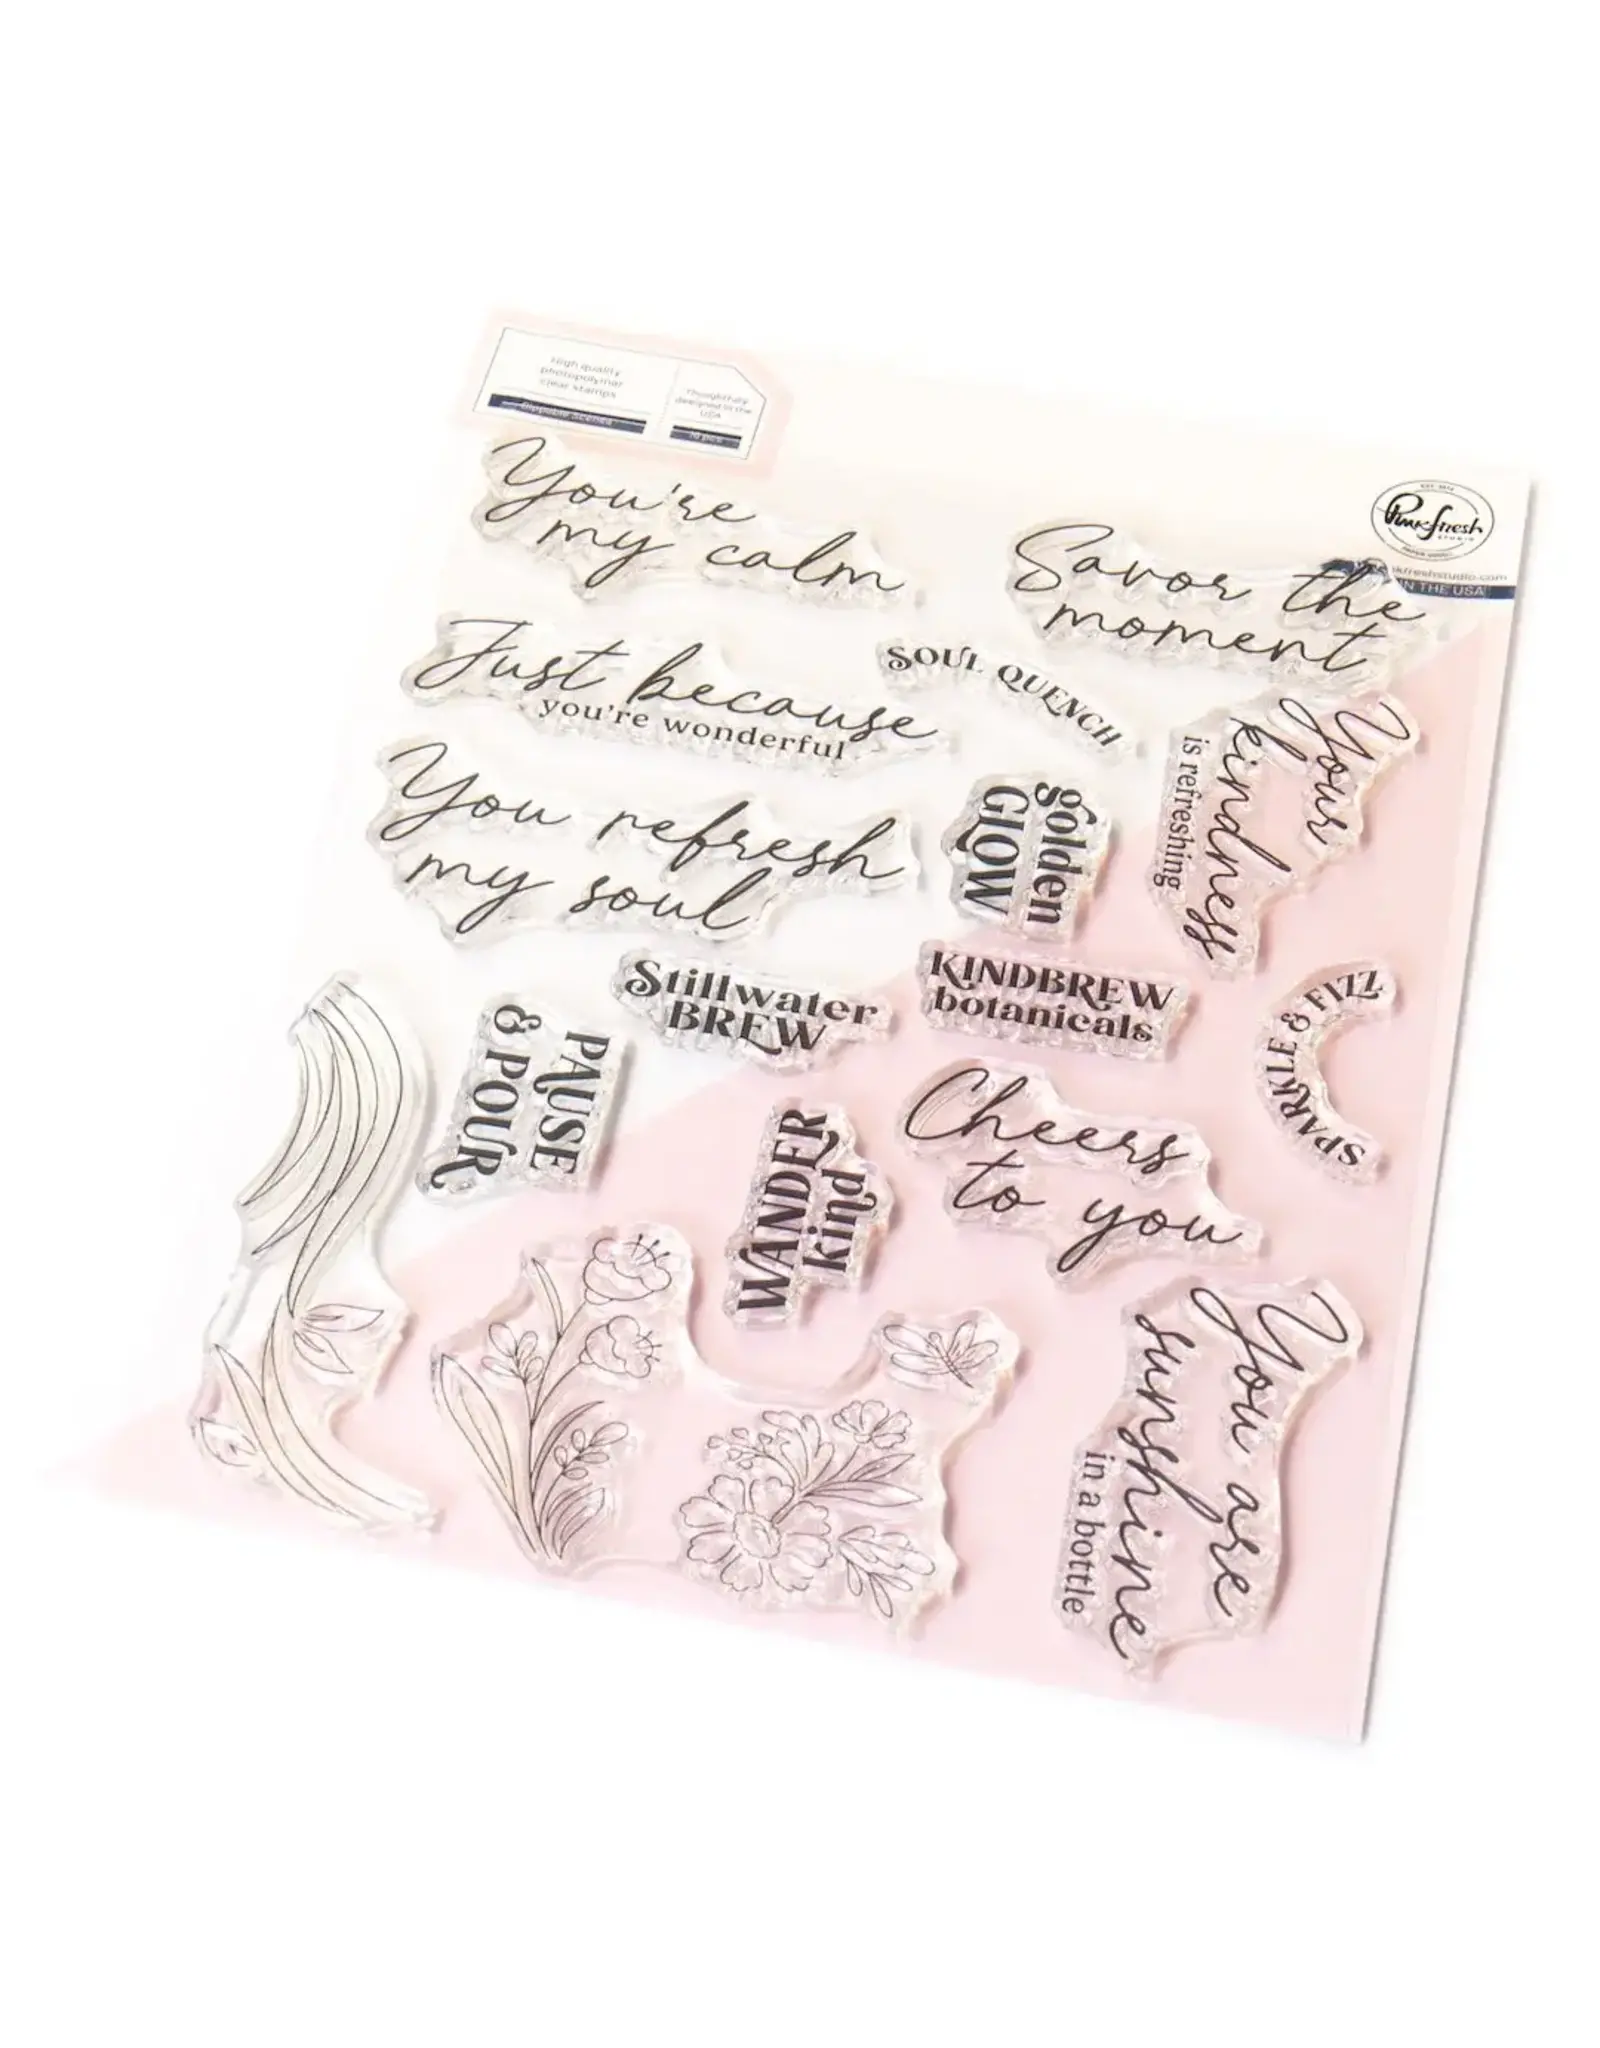 High quality
photopolymer
clear stamps
Thoughtfully
designed in the
USA
You're
my calm
Pinkfresh
STUDIO
IN THE USA
Savor the
moment
Just because
you're wonderful
SOUL QUENCH
Your
kindness
is refreshing
You refresh
my soul
golden
GLOW
Stillwater
BREW
KINDBREW
botanicals
SPARKLE & FIZZ
PAUSE
& POUR
WANDER
kind
Cheers
to you
You are
sunshine
in a bottle